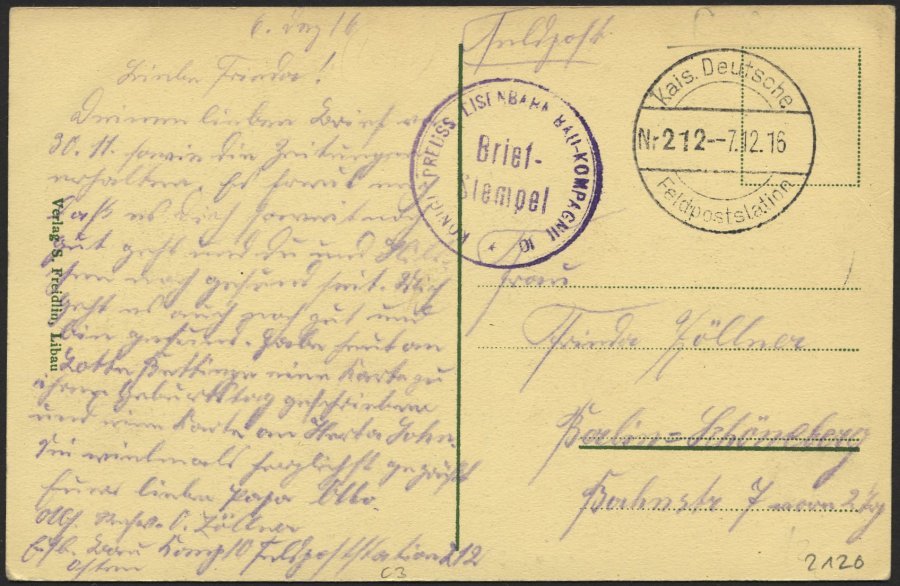 6. Dez 16
Liebe Frieda!
Deinen lieben Brief vom
30.11. sowie die Zeitungen
erhalten. Es freut mich
daß es Dich soweit noch
gut geht und du und
noch gesund seit. Mich
geht es auch noch gut und
bin gesund. Habe heut an
Lotte eine Karte zu
ihrem Geburtstag geschrieben
und eine Karte an Herta
Sei vielmals herzlichst gegrüßt
Euer lieber Papa Otto.
O. Zöllner
Esb. Bau Komp 10 Feldpoststation 212
Osten
Verlag S. Freidlin, Libau
Feldpost
KÖNIGL. PREUSS. EISENBAHN BAU-KOMPAGNIE 10 *
Brief-
Stempel
Kais. Deutsche
Nr 212 -- 7.12.16
Feldpoststation
Frau
Frieda Zöllner
Berlin=Schöneberg
Bahnstr 7 vorn 2 Trg
C3
2120